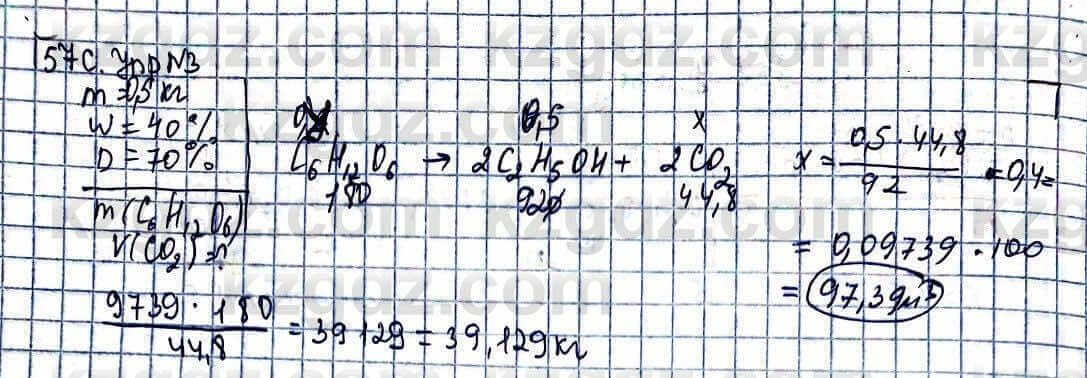 57с. Упр №3
m = 0,5 кг
W = 40%
D = 70%
m(C₆H₁₂O₆)
V(CO₂) = ?
0,5 x
C₆H₁₂O₆ → 2C₂H₅OH + 2CO₂
180 92 44,8
x = 0,5 · 44,8 / 92 · 0,4 =
= 0,09739 · 100
= 97,39
9739 · 180 / 44,8 = 39129 = 39,129 кг
kzgdz.com